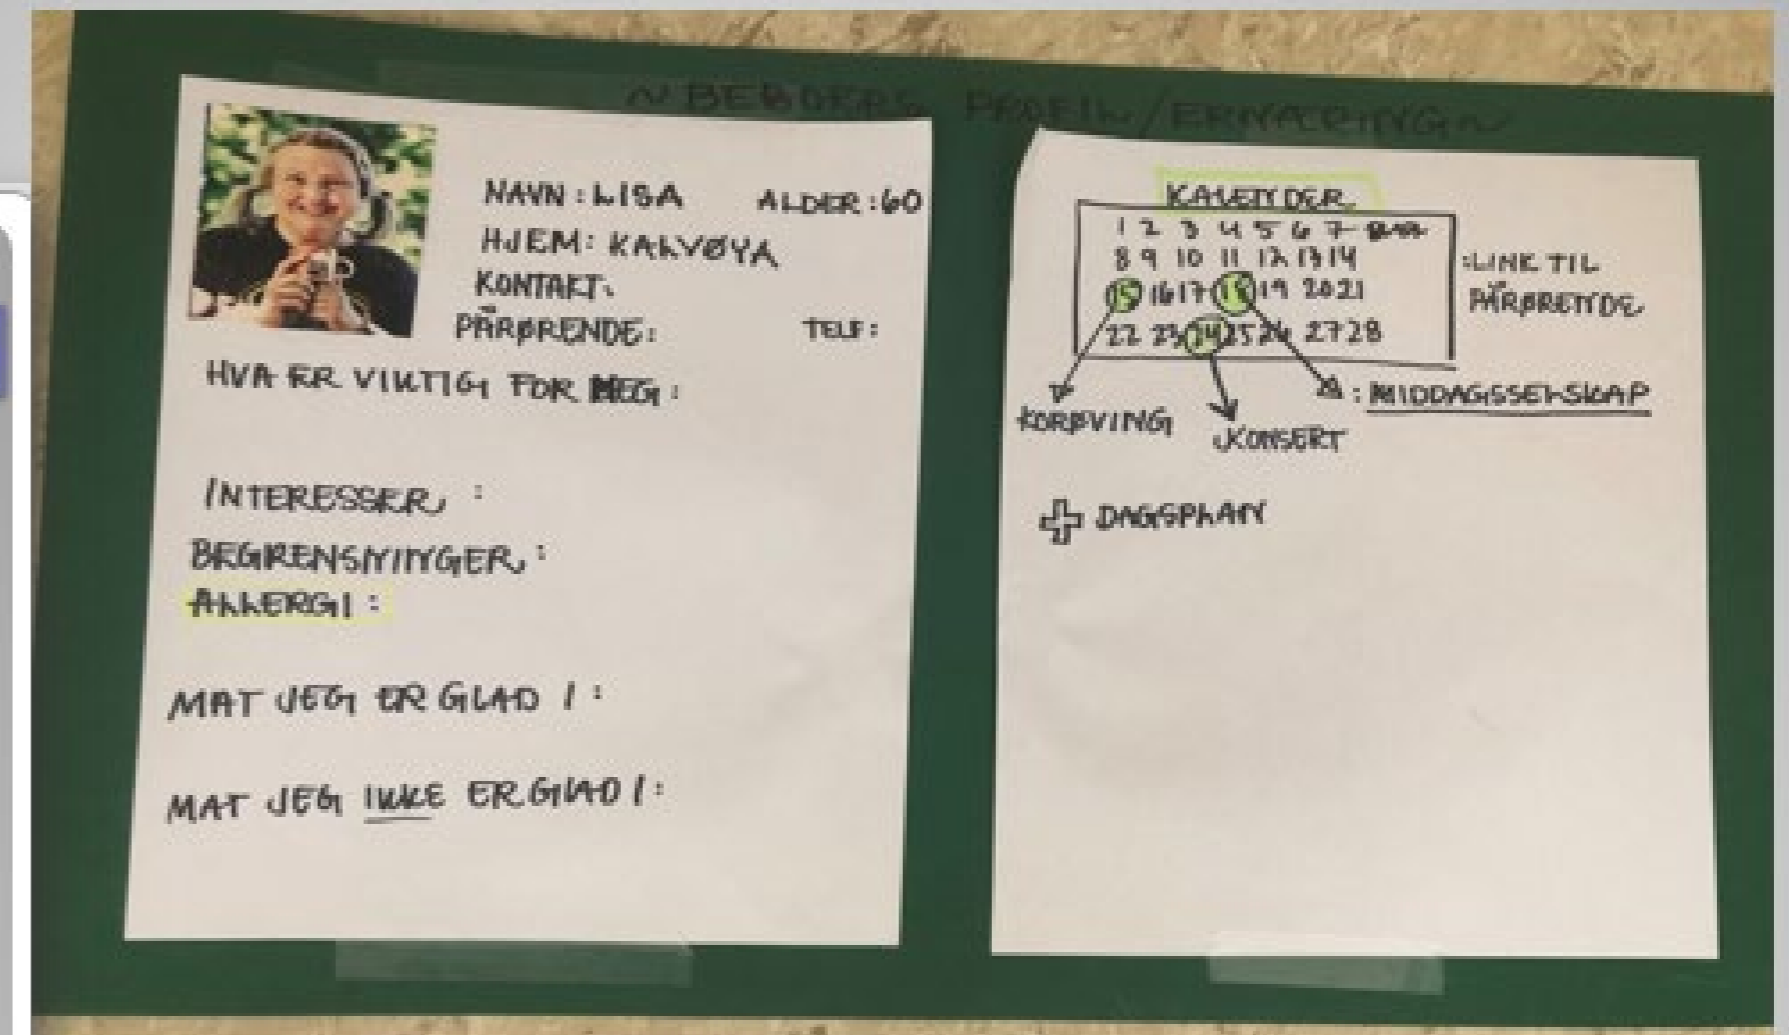 ~ BEBOERS PROFIL/ERNÆRING ~
NAVN: LISA ALDER: 60
HJEM: KALVØYA
KONTAKT:
PÅRØRENDE: TELF:
HVA ER VIKTIG FOR MEG:
INTERESSER :
BEGRENSNINGER :
ALLERGI :
MAT JEG ER GLAD I :
MAT JEG IKKE ER GLAD I :
KALENDER
1 2 3 4 5 6 7
8 9 10 11 12 13 14
15 16 17 18 19 20 21
22 23 24 25 26 27 28
:LINK TIL
PÅRØRENDE
: MIDDAGSSELSKAP
KORØVING
KONSERT
DAGSPLAN